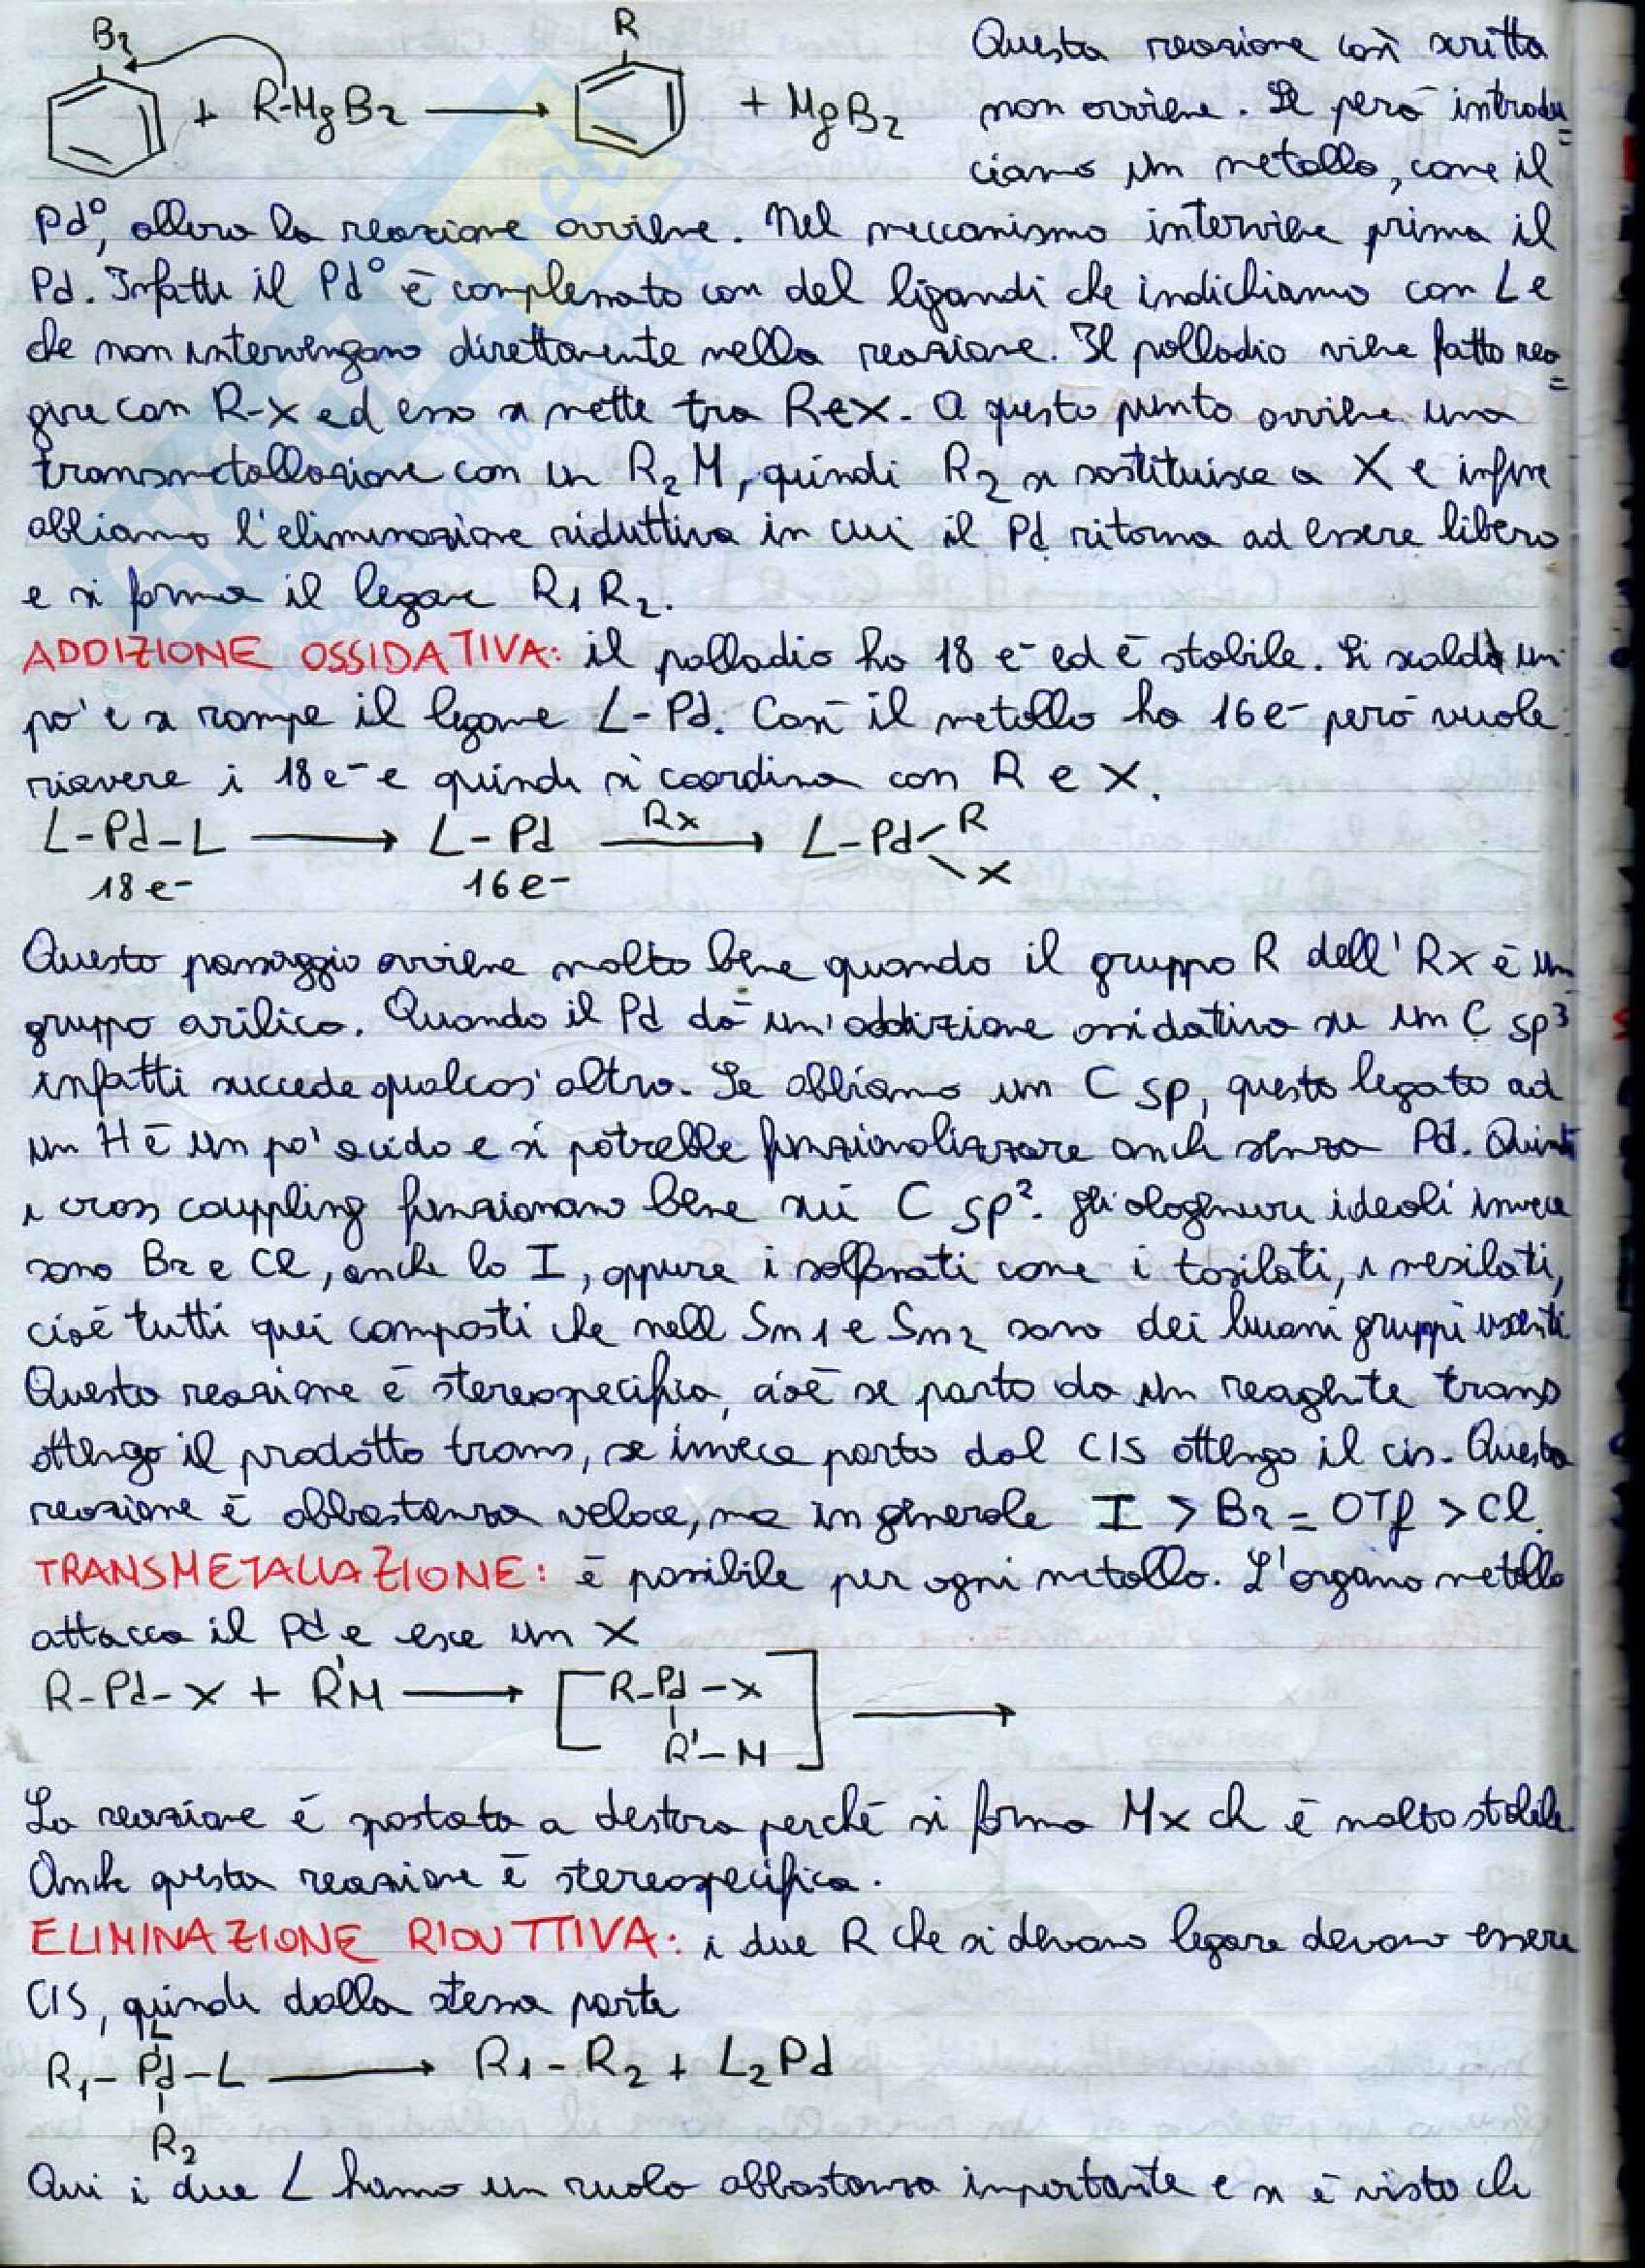 Br R Questa reazione così scritta
+ R-MgBr → + MgBr non avviene. Se però introdu=
ciamo un metallo, come il
Pd°, allora la reazione avviene. Nel meccanismo interviene prima il
Pd. Infatti il Pd° è complessato con dei ligandi che indichiamo con L e
che non intervengono direttamente nella reazione. Il palladio viene fatto rea=
gire con R-X ed esso si mette tra R e X. A questo punto avviene una
transmetallazione con un R2M, quindi R2 si sostituisce a X e infine
abbiamo l'eliminazione riduttiva in cui il Pd ritorna ad essere libero
e si forma il legame R1R2.
ADDIZIONE OSSIDATIVA: il palladio ha 18 e- ed è stabile. Si scalda un
po' e si rompe il legame L-Pd. Così il metallo ha 16e- però vuole
riavere i 18e- e quindi si coordina con R e X.
L-Pd-L → L-Pd Rx → L-Pd R X
18e- 16e-
Questo passaggio avviene molto bene quando il gruppo R dell'Rx è un
gruppo arilico. Quando il Pd dà un'addizione ossidativa su un C sp3
infatti succede qualcos'altro. Se abbiamo un C sp, questo legato ad
un H è un po' acido e si potrebbe funzionalizzare anche senza Pd. Quindi
i cross couppling funzionano bene sui C sp2. Gli alogenuri ideali invece
sono Br e Cl, anche lo I, oppure i solfonati come i tosilati, i mesilati,
cioè tutti quei composti che nell Sn1 e Sn2 sono dei buoni gruppi uscenti
Questa reazione è stereospecifica, cioè se parto da un reagente trans
ottengo il prodotto trans, se invece parto dal CIS ottengo il cis. Questa
reazione è abbastanza veloce, ma in generale I > Br = OTf > Cl.
TRANSMETALLAZIONE: è possibile per ogni metallo. L'organo metallo
attacca il Pd e esce un X
R-Pd-X + R'M → [R-Pd-X →
R'-M]
La reazione è spostata a destra perché si forma Mx ch è molto stabile.
Anche questa reazione è stereospecifica.
ELIMINAZIONE RIDUTTIVA: i due R che si devono legare devono essere
CIS, quindi dalla stessa parte
L
R1-Pd-L → R1-R2 + L2Pd
R2
Qui i due L hanno un ruolo abbastanza importante e si è visto che